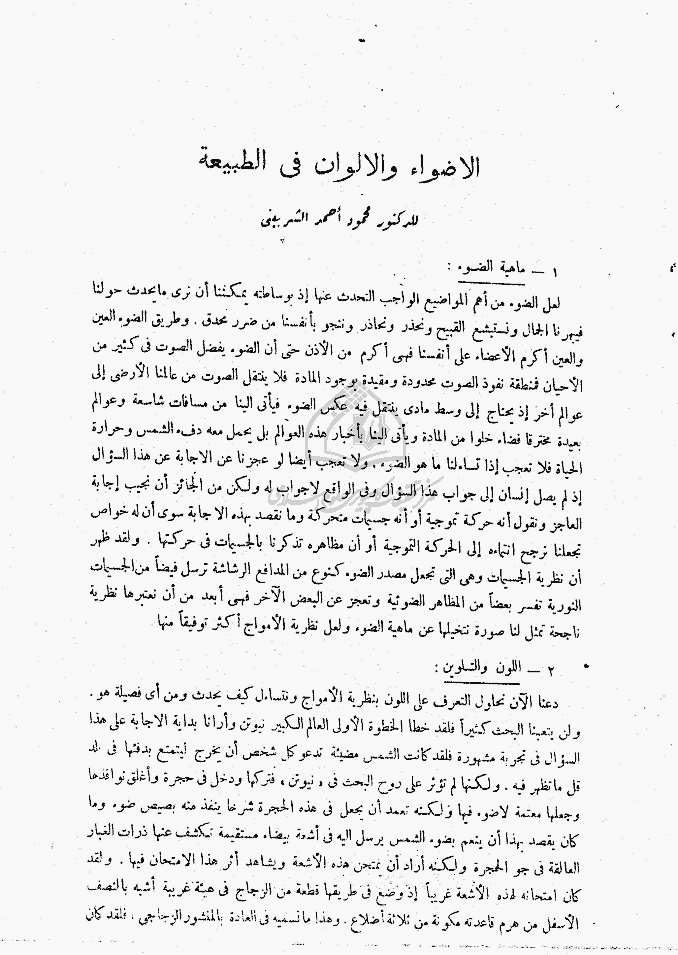 الاضواء والالوان فى الطبيعة
للدكتور محمود أحمد الشربينى
١ — ماهية الضوء :
لعل الضوء من أهم المواضيع الواجب التحدث عنها إذ بوساطته يمكننا أن نرى مايحدث حولنا
فيبهرنا الجمال ونستبشع القبيح ونحذر ونحاذر وننجو بأنفسنا من ضرر محدق . وطريق الضوء العين
والعين أكرم الأعضاء على أنفسنا فهى أكرم من الأذن حتى أن الضوء يفضل الصوت فى كثير من
الأحيان فمنطقة نفوذ الصوت محدودة ومقيدة بوجود المادة فلا ينتقل الصوت من عالمنا الأرضى إلى
عوالم أخر إذ يحتاج إلى وسط مادى ينتقل فيه عكس الضوء فيأتى الينا من مسافات شاسعة وعوالم
بعيدة مخترقا فضاء خلوا من المادة ويأتى الينا بأخبار هذه العوالم بل يحمل معه دفء الشمس وحرارة
الحياة فلا تعجب إذا تساءلنا ما هو الضوء . ولا تعجب أيضا لو عجزنا عن الاجابة عن هذا السؤال
إذ لم يصل إنسان إلى جواب هذا السؤال وفى الواقع لاجواب له ولكن من الجائز أن نجيب إجابة
العاجز ونقول أنه حركة تموجية أو أنه جسيمات متحركة وما نقصد بهذه الاجابة سوى أن له خواص
تجعلنا نرجح انتماءه إلى الحركة التموجية أو أن مظاهره تذكرنا بالجسيمات فى حركتها . ولقد ظهر
أن نظرية الجسيمات وهى التى تجعل مصدر الضوء كنوع من المدافع الرشاشة ترسل فيضاً من الجسيمات
النورية تفسر بعضاً من المظاهر الضوئية وتعجز عن البعض الآخر فهى أبعد من أن نعتبرها نظرية
ناجحة تمثل لنا صورة نتخيلها عن ماهية الضوء ولعل نظرية الأمواج أكثر توفيقاً منها
٢ — اللون والتلوين :
دعنا الآن نحاول التعرف على اللون بنظرية الأمواج ونتساءل كيف يحدث ومن أى فصيلة هو .
ولن يتعبنا البحث كثيراً فلقد خطا الخطوة الأولى العالم الكبير نيوتن وأرانا بداية الاجابة على هذا
السؤال فى تجربة مشهورة فلقد كانت الشمس مضيئة تدعو كل شخص أن يخرج ليتمتع بدفئها فى بلد
قل ما تظهر فيه . ولكنها لم تؤثر على روح البحث فى « نيوتن » فتركها ودخل فى حجرة وأغلق نوافذها
وجعلها معتمة لاضوء فيها ولكنه تعمد أن يجعل فى هذه الحجرة شرخا ينفذ منه بصيص ضوء وما
كان يقصد بهذا أن ينعم بضوء الشمس يرسل اليه فى أشعة بيضاء مستقيمة تكشف عنها ذرات الغبار
العالقة فى جو الحجرة ولكنه أراد أن يمتحن هذه الأشعة ويشاهد أثر هذا الامتحان فيها . ولقد
كان امتحانه لهذه الأشعة غريباً إذ وضع فى طريقها قطعة من الزجاج فى هيئة غريبة أشبه بالنصف
الأسفل من هرم قاعدته مكونة من ثلاثة أضلاع . وهذا ما نسميه فى العادة بالمنشور الزجاجى . فلقد كان